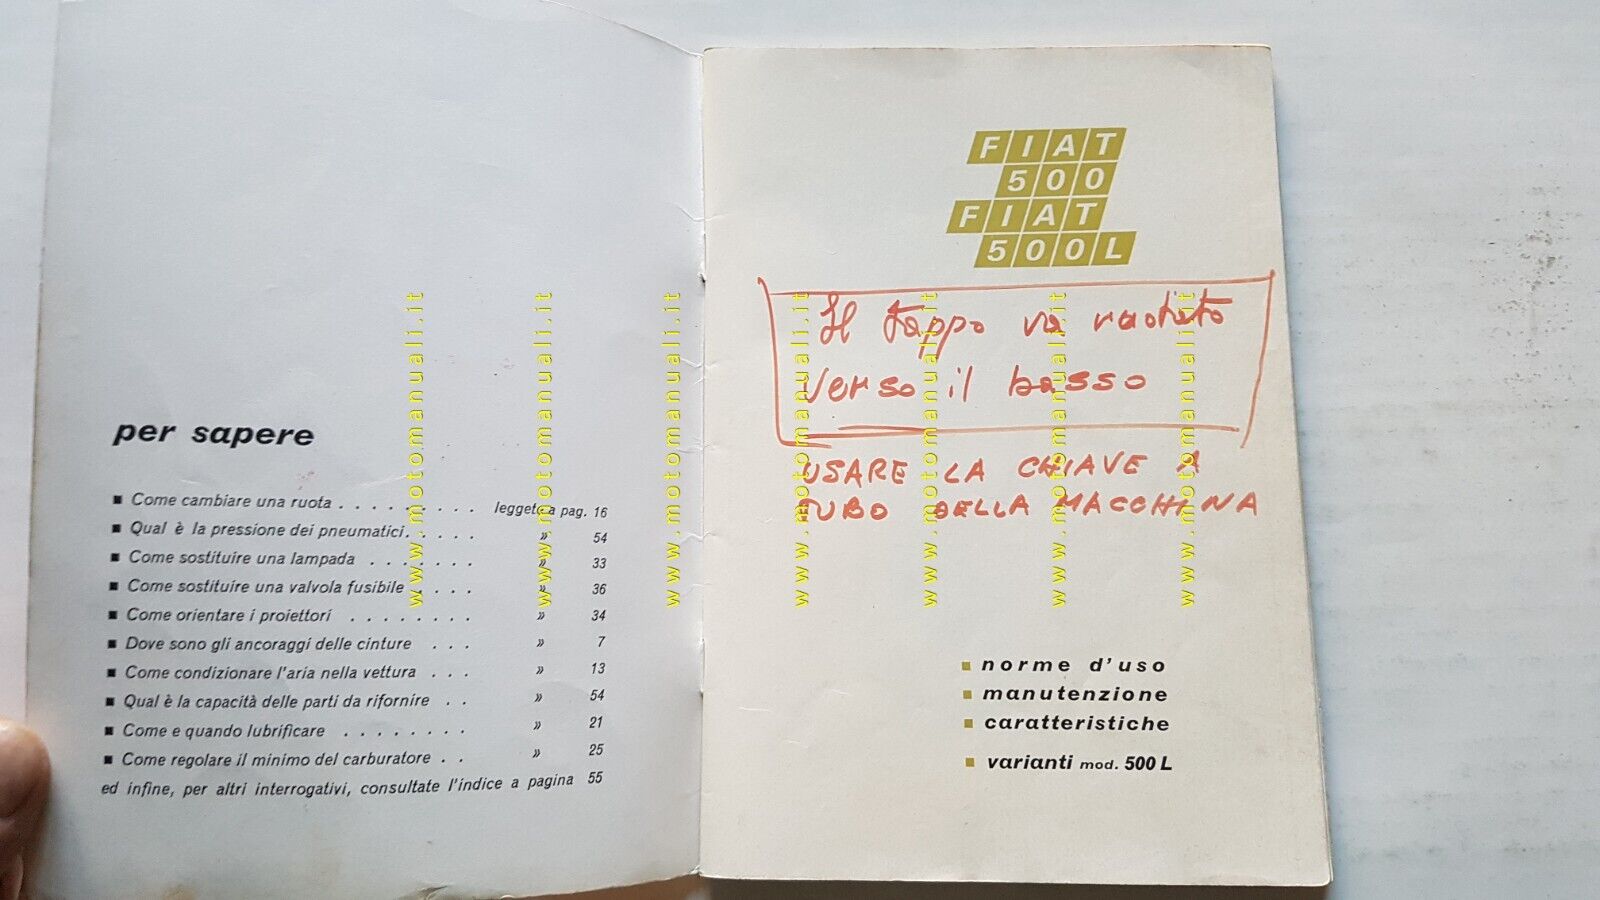 per sapere
■ Come cambiare una ruota . . . . . . . . . leggete a pag. 16
■ Qual è la pressione dei pneumatici. . . . . » 54
■ Come sostituire una lampada . . . . . . . » 33
■ Come sostituire una valvola fusibile . . . . » 36
■ Come orientare i proiettori . . . . . . . . » 34
■ Dove sono gli ancoraggi delle cinture . . . » 7
■ Come condizionare l'aria nella vettura . . . » 13
■ Qual è la capacità delle parti da rifornire . . » 54
■ Come e quando lubrificare . . . . . . . . » 21
■ Come regolare il minimo del carburatore . . » 25
ed infine, per altri interrogativi, consultate l'indice a pagina 55
FIAT
500
FIAT
500L
Il tappo va
verso il basso
USARE LA CHIAVE A
TUBO DELLA MACCHINA
■ norme d'uso
■ manutenzione
■ caratteristiche
■ varianti mod. 500 L
www.motomanuali.it
www.motomanuali.it
www.motomanuali.it
www.motomanuali.it
www.motomanuali.it
www.motomanuali.it
www.motomanuali.it